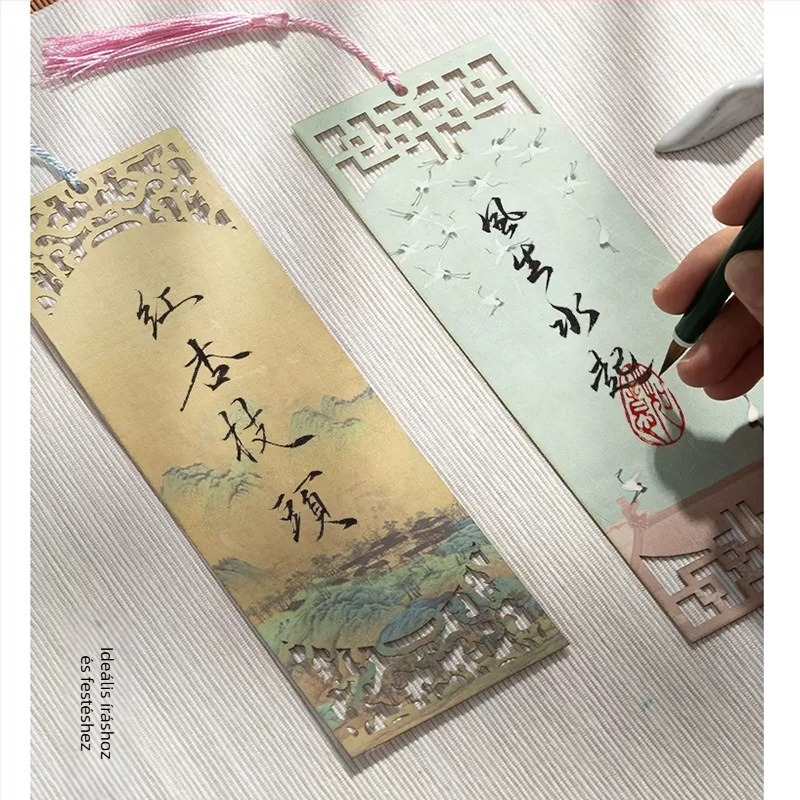 紅杏枝頭
風生水起
Ideális íráshoz
és festéshez